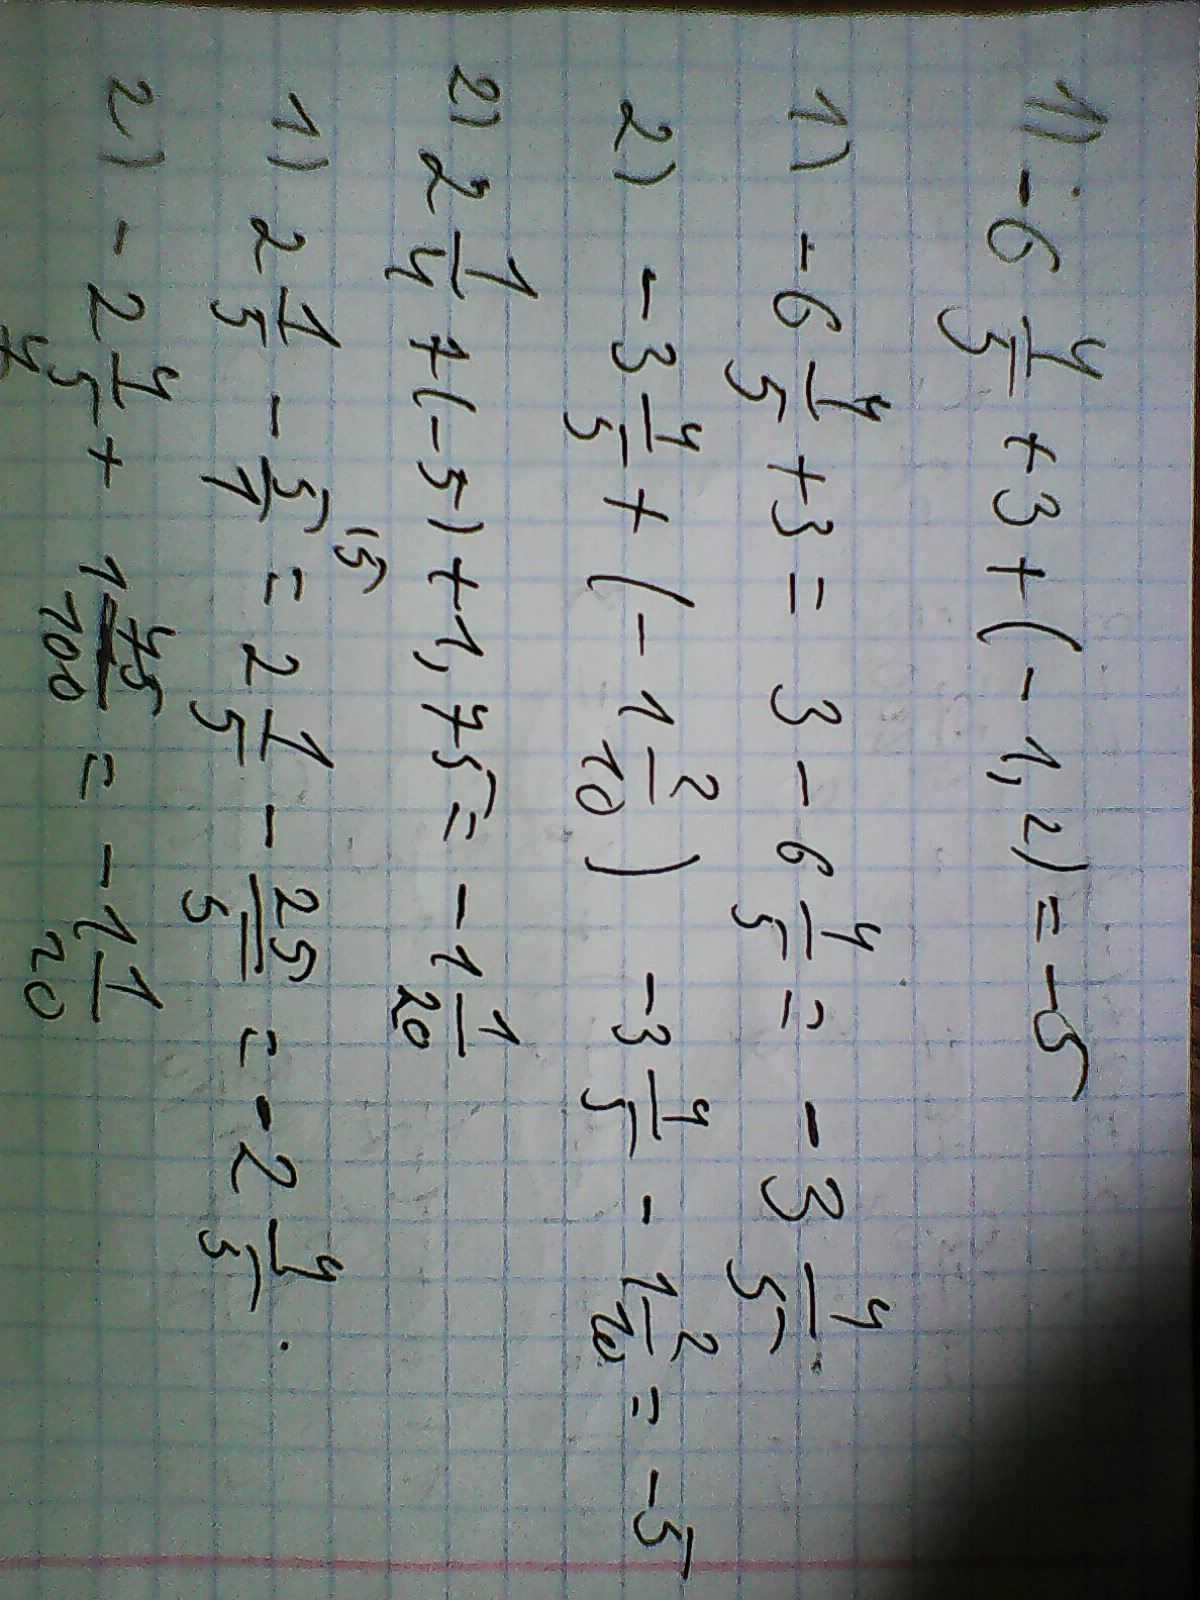 1) -6 4/5 + 3 + (-1,2) = -5
1) -6 4/5 + 3 = 3 - 6 4/5 = -3 4/5
2) -3 4/5 + (-1 2/10) -3 4/5 - 1 2/10 = -5
2) 2 1/4 + (-5) + 1,75 = -1 1/20
1) 2 1/5 - 5/1 ^(5 = 2 1/5 - 25/5 = -2 4/5.
2) -2 4/5 + 1 75/100 = -1 1/20